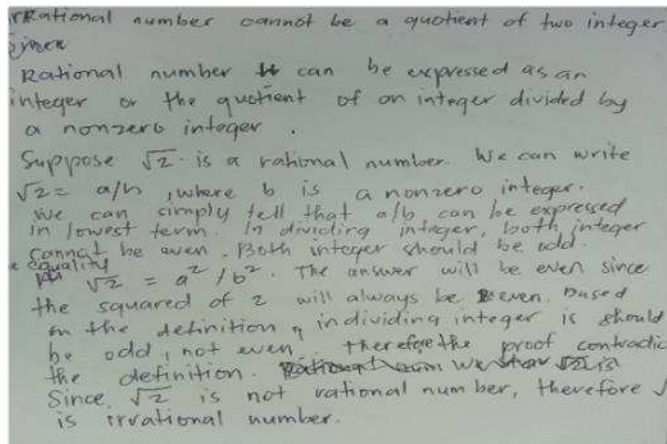 rrational number cannot be a quotient of two integer
since
Rational number can be expressed as an
integer or the quotient of an integer divided by
a nonzero integer.
Suppose √2 is a rational number. We can write
√2 = a/b, where b is a nonzero integer.
We can simply tell that a/b can be expressed
in lowest term. In dividing integer, both integer
cannot be even. Both integer should be odd.
e equality √2 = a²/b². The answer will be even since
the squared of 2 will always be even. Based
on the definition, in dividing integer is should
be odd, not even. Therefore the proof contradic
the definition.
Since √2 is not rational number, therefore √
is irrational number.